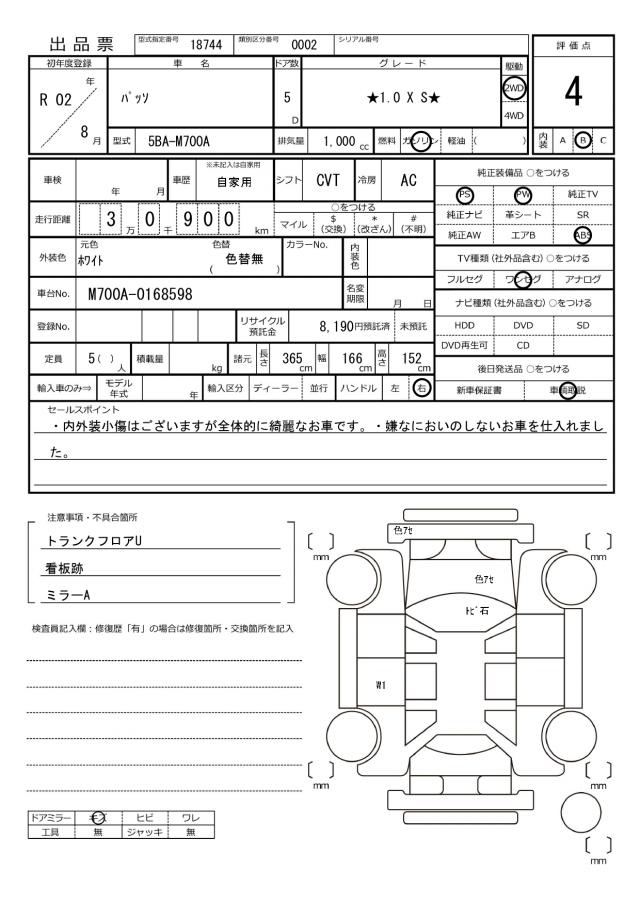 出品票 型式指定番号 18744 類別区分番号 0002 シリアル番号
評価点
4
初年度登録 車名 ドア数 グレード 駆動
R 02 年 8 月 パッソ 5 D ★1.0 X S★ 2WD 4WD
型式 5BA-M700A 排気量 1,000 cc 燃料 ガソリン 軽油 ( ) 内装 A B C
車検 年 月 車歴 ※未記入は自家用 自家用 シフト CVT 冷房 AC
走行距離 3 万 0 千 9 0 0 km ○をつける
マイル $ (交換) * (改ざん) # (不明)
外装色 元色 ホワイト 色替 ( 色替無 ) カラーNo. 内装色
車台No. M700A-0168598 名変期限 月 日
登録No. リサイクル預託金 8,190円預託済 未預託
定員 5 ( ) 人 積載量 kg 諸元 長さ 365 cm 幅 166 cm 高さ 152 cm
輸入車のみ⇒ モデル年式 年 輸入区分 ディーラー 並行 ハンドル 左 右
純正装備品 ○をつける
PS PW 純正TV
純正ナビ 革シート SR
純正AW エアB ABS
TV種類 (社外品含む) ○をつける
フルセグ ワンセグ アナログ
ナビ種類 (社外品含む) ○をつける
HDD DVD SD
DVD再生可 CD
後日発送品 ○をつける
新車保証書 車輌取説
セールスポイント
・内外装小傷はございますが全体的に綺麗なお車です。・嫌なにおいのしないお車を仕入れまし
た。
注意事項・不具合箇所
トランクフロアU
看板跡
ミラーA
検査員記入欄：修復歴「有」の場合は修復箇所・交換箇所を記入
色アセ
色アセ
トビ石
W1
mm
mm
mm
mm
mm
ドアミラー キズ ヒビ ワレ
工具 無 ジャッキ 無